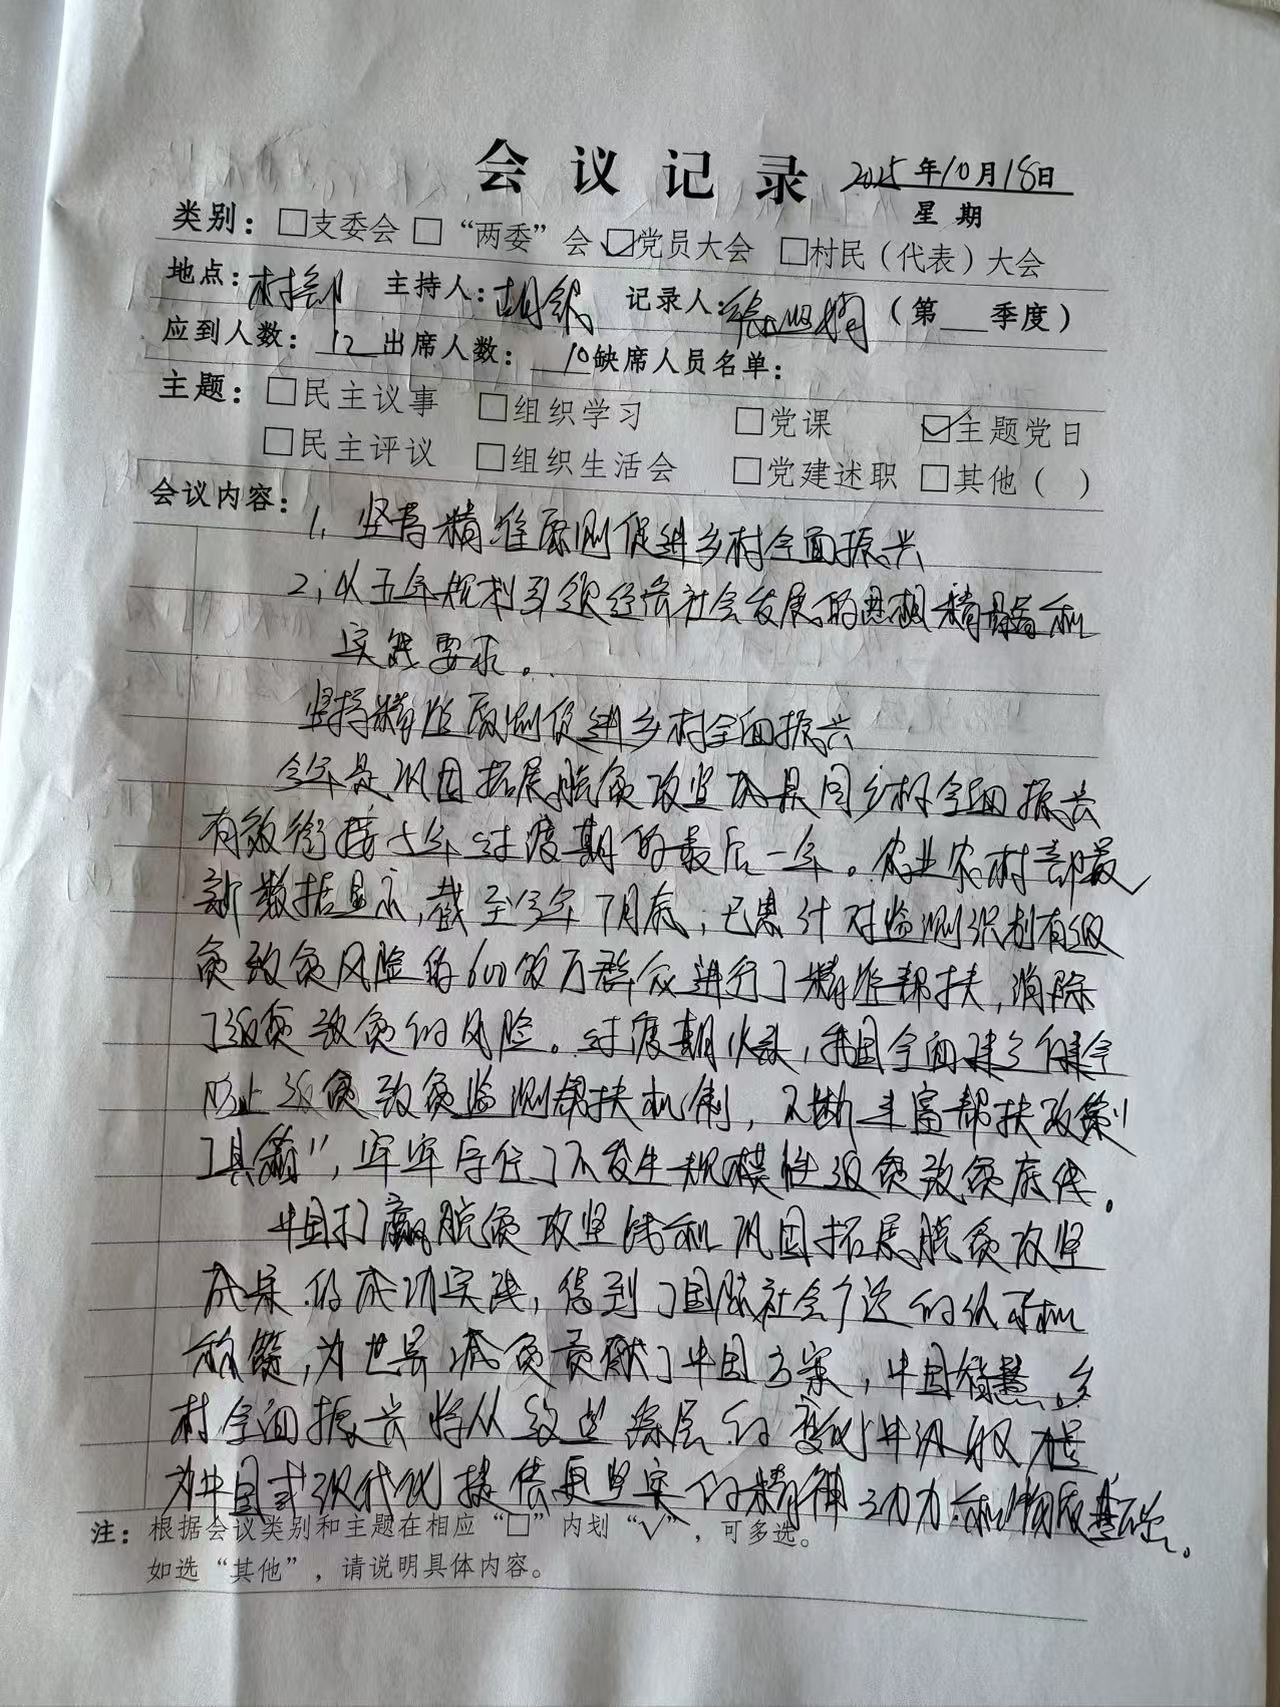 会议记录 2025年10月18日
星期
类别：□支委会 □“两委”会 ☑党员大会 □村民（代表）大会
地点：村部 主持人：胡 记录人：张 （第___季度）
应到人数：12 出席人数：10 缺席人员名单：
主题：□民主议事 □组织学习 □党课 ☑主题党日
□民主评议 □组织生活会 □党建述职 □其他（ ）
会议内容：1、坚持精准原则促进乡村全面振兴
2、以五年规划引领经济社会发展的思想精髓和
实践要求。
坚持精准原则促进乡村全面振兴
今年是巩固拓展脱贫攻坚成果同乡村全面振兴
有效衔接五年过渡期的最后一年。农业农村部最
新数据显示，截至今年7月底，已累计对监测识别有返
贫致贫风险的600多万群众进行了精准帮扶，消除
了返贫致贫的风险。过渡期以来，我国全面建立健全
防止返贫致贫监测帮扶机制，不断丰富帮扶政策“
工具箱”，牢牢守住了不发生规模性返贫致贫底线。
中国打赢脱贫攻坚战和巩固拓展脱贫攻坚
成果的成功实践，得到了国际社会广泛的认可和
称赞，为世界减贫贡献了中国方案，中国智慧、乡
村全面振兴将从这些深层的变化中汲取力量
为中国式现代化提供更坚实的精神动力和物质基础。
注：根据会议类别和主题在相应“□”内划“√”，可多选。
如选“其他”，请说明具体内容。